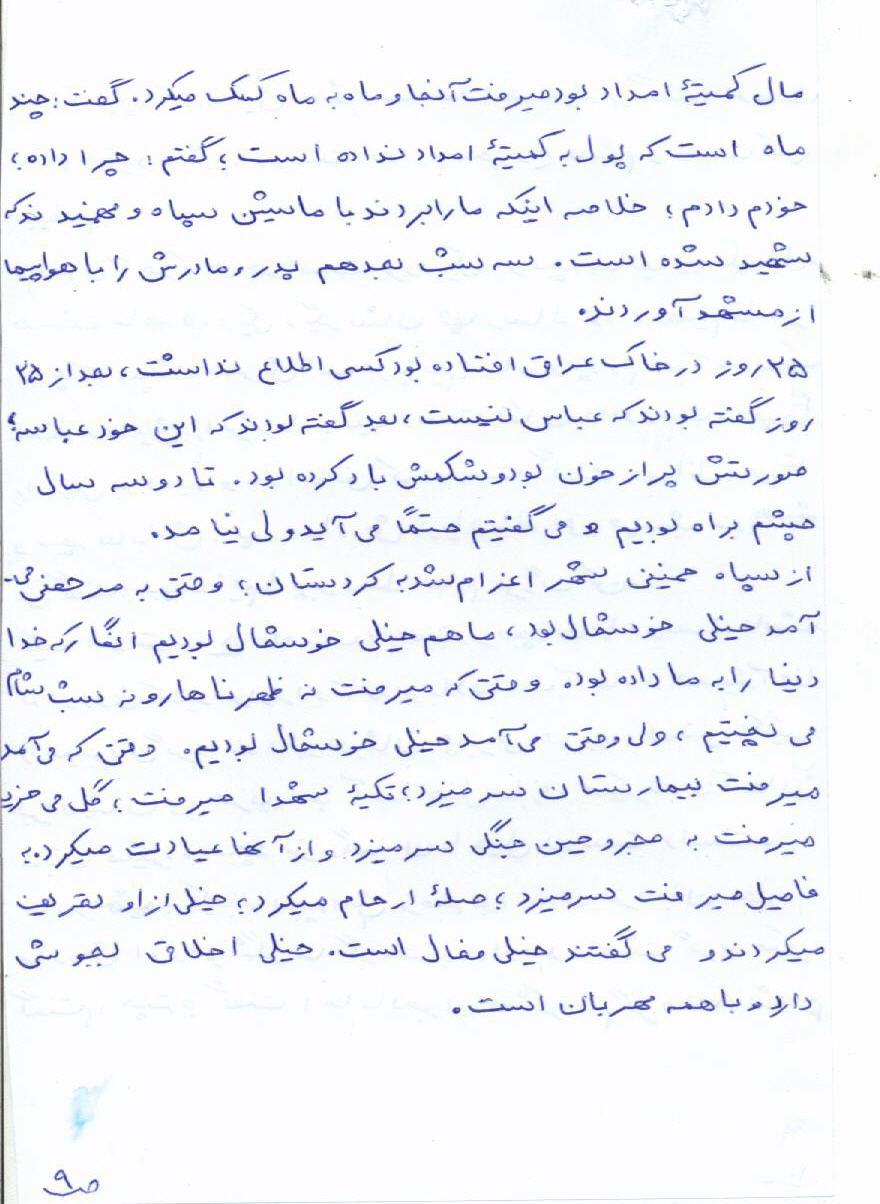 مال کمیتهٔ امداد بود میرفت آنجا و ماه به ماه کمک میکرد. گفت: چند
ماه است که پول به کمیتهٔ امداد نداده است؛ گفتم: چرا داده؛
خودم دادم؛ خلاصه اینکه ما را بردند با ماشین سپاه و فهمیدند که
شهید شده است. سه شب بعد هم پدر و مادرش را با هواپیما
از مشهد آوردند.
۲۵ روز در خاک عراق افتاده بود کسی اطلاع نداشت، بعد از ۲۵
روز گفته بودند که عباس نیست، بعد گفته بودند که این خود عباسه؛
صورتش پر از خون بود و شکمش باد کرده بود. تا دو سه سال
چشم براه بودیم و می گفتیم حتماً می آید ولی نیامد.
از سپاه خمینی شهر اعزام شد به کردستان؛ وقتی به مرخصی می-
آمد خیلی خوشحال بود، ما هم خیلی خوشحال بودیم انگار که خدا
دنیا را به ما داده بود. وقتی که میرفت نه ظهر ناهار و نه شب شام
می پختیم، ولی وقتی می آمد خیلی خوشحال بودیم. وقتی که می آمد
میرفت بیمارستان سر میزد؛ تکیهٔ شهدا میرفت؛ گل می خرید
میرفت به مجروحین جنگی سر میزد و از آنها عیادت میکرد. به
فامیل میرفت سر میزد؛ صلهٔ ارحام میکرد؛ خیلی از او تعریف
میکردند و می گفتند خیلی فعال است. خیلی اخلاق خوشی
دارد و با همه مهربان است.
ص۹